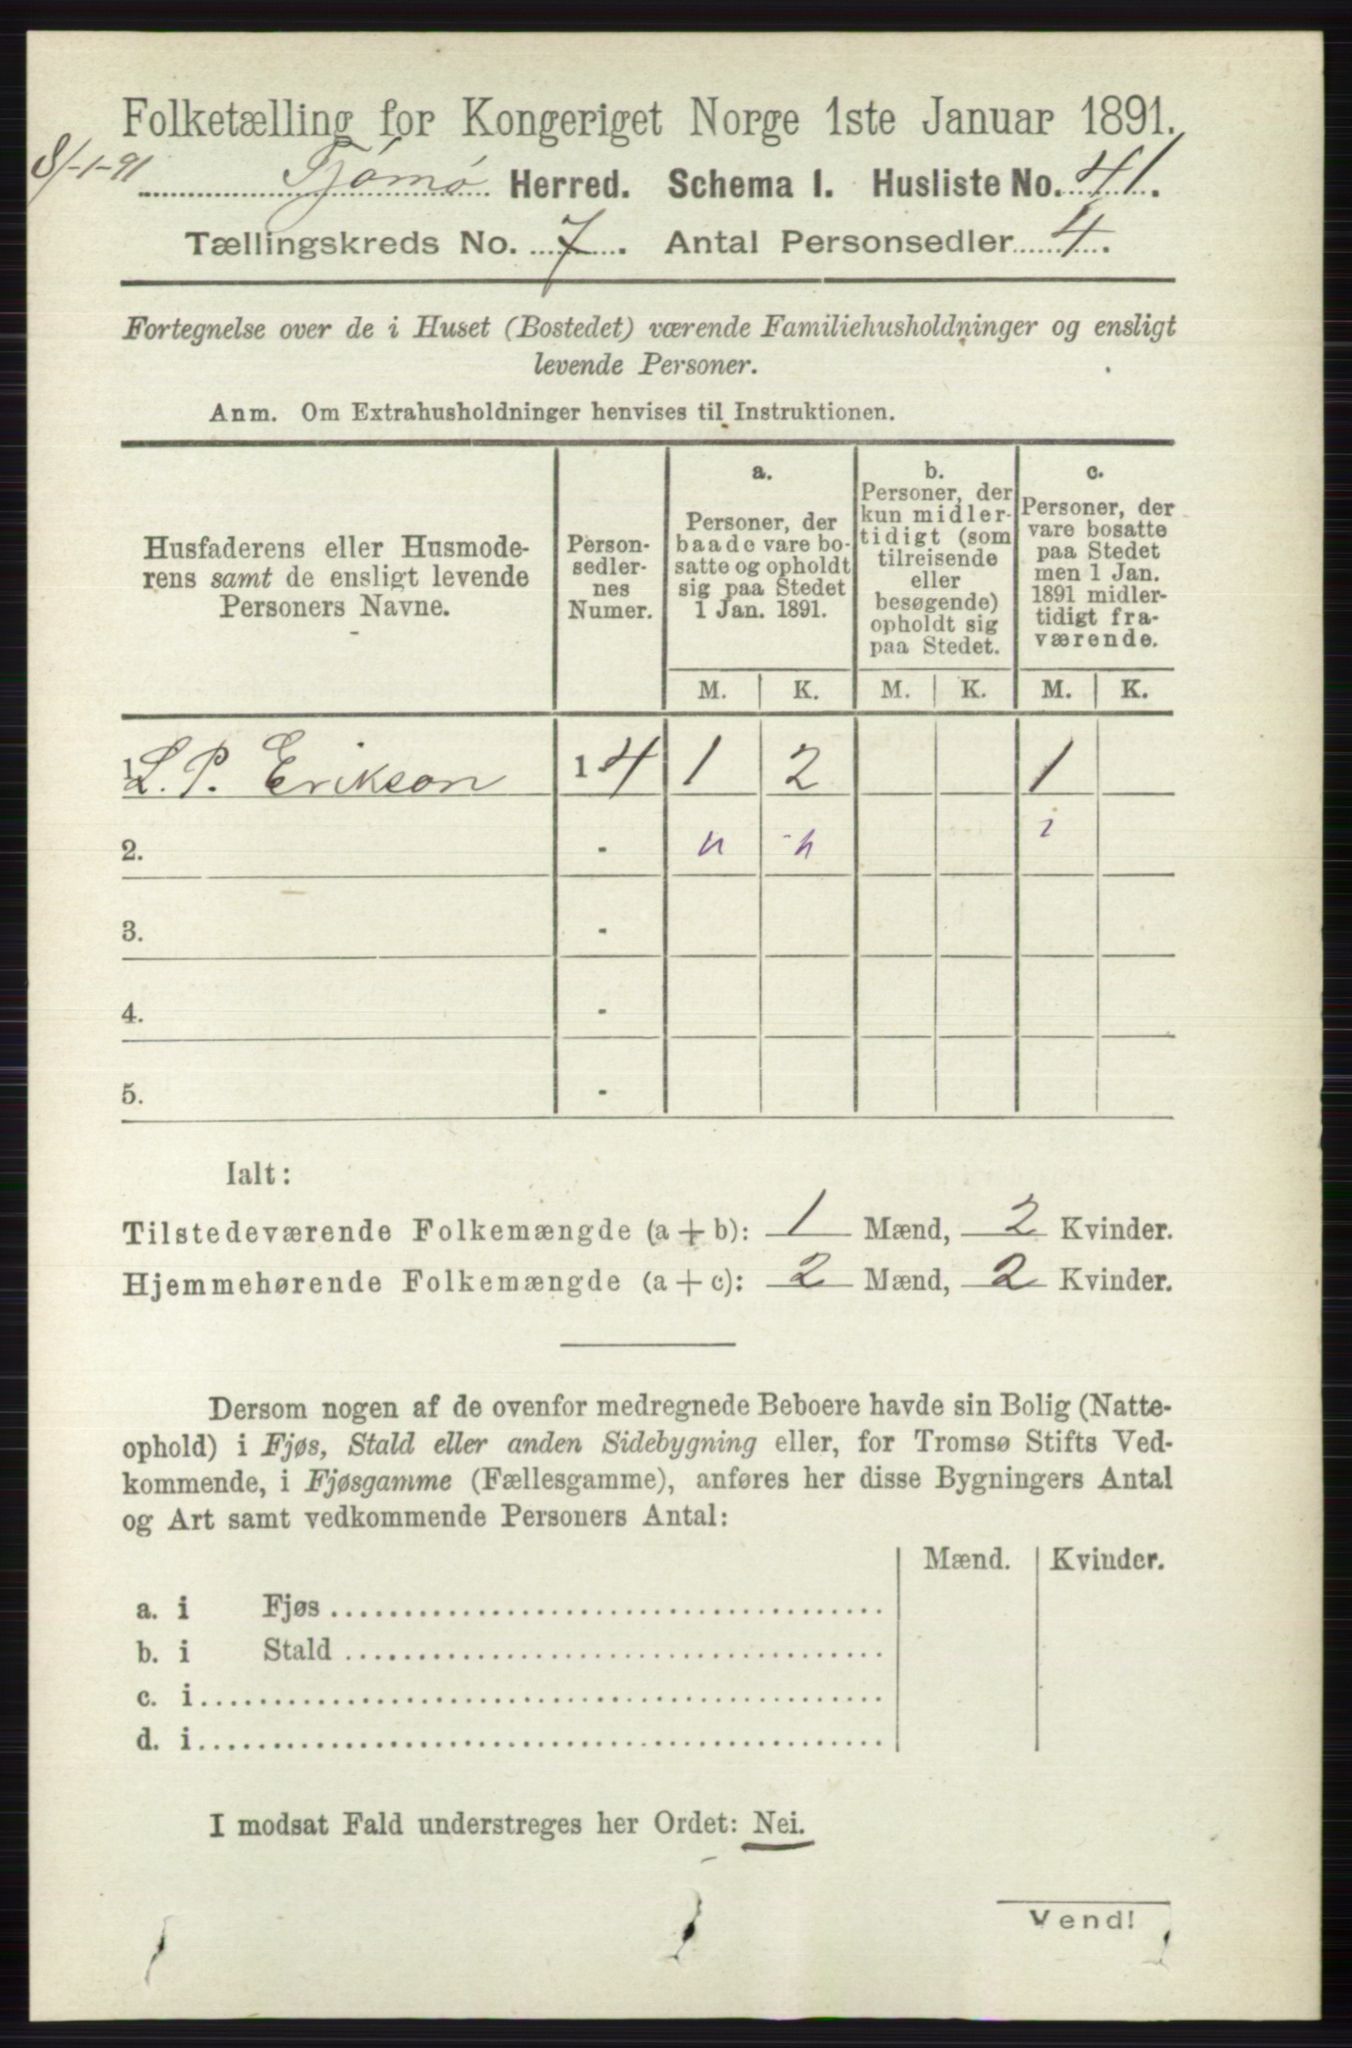 Folketælling for Kongeriget Norge 1ste Januar 1891.
8/-1-91
Tjömø Herred. Schema I. Husliste No. 41.
Tællingskreds No. 7. Antal Personsedler 4.
Fortegnelse over de i Huset (Bostedet) værende Familiehusholdninger og ensligt
levende Personer.
Anm. Om Extrahusholdninger henvises til Instruktionen.
Husfaderens eller Husmode-
rens samt de ensligt levende
Personers Navne.
Person-
sedler-
nes
Numer.
a.
Personer, der
baade vare bo-
satte og opholdt
sig paa Stedet
1 Jan. 1891.
b.
Personer, der
kun midler-
tidigt (som
tilreisende
eller
besøgende)
opholdt sig
paa Stedet.
c.
Personer, der
vare bosatte
paa Stedet
men 1 Jan.
1891 midler-
tidigt fra-
værende.
M. K. M. K. M. K.
1. L. P. Erikson 1 4 1 2 1
2. -
3. -
4. -
5. -
Ialt:
Tilstedeværende Folkemængde (a + b): 1 Mænd, 2 Kvinder.
Hjemmehørende Folkemængde (a + c): 2 Mænd, 2 Kvinder.
Dersom nogen af de ovenfor medregnede Beboere havde sin Bolig (Natte-
ophold) i Fjøs, Stald eller anden Sidebygning eller, for Tromsø Stifts Ved-
kommende, i Fjøsgamme (Fællesgamme), anføres her disse Bygningers Antal
og Art samt vedkommende Personers Antal:
Mænd. Kvinder.
a. i Fjøs
b. i Stald
c. i
d. i
I modsat Fald understreges her Ordet: Nei.
Vend!